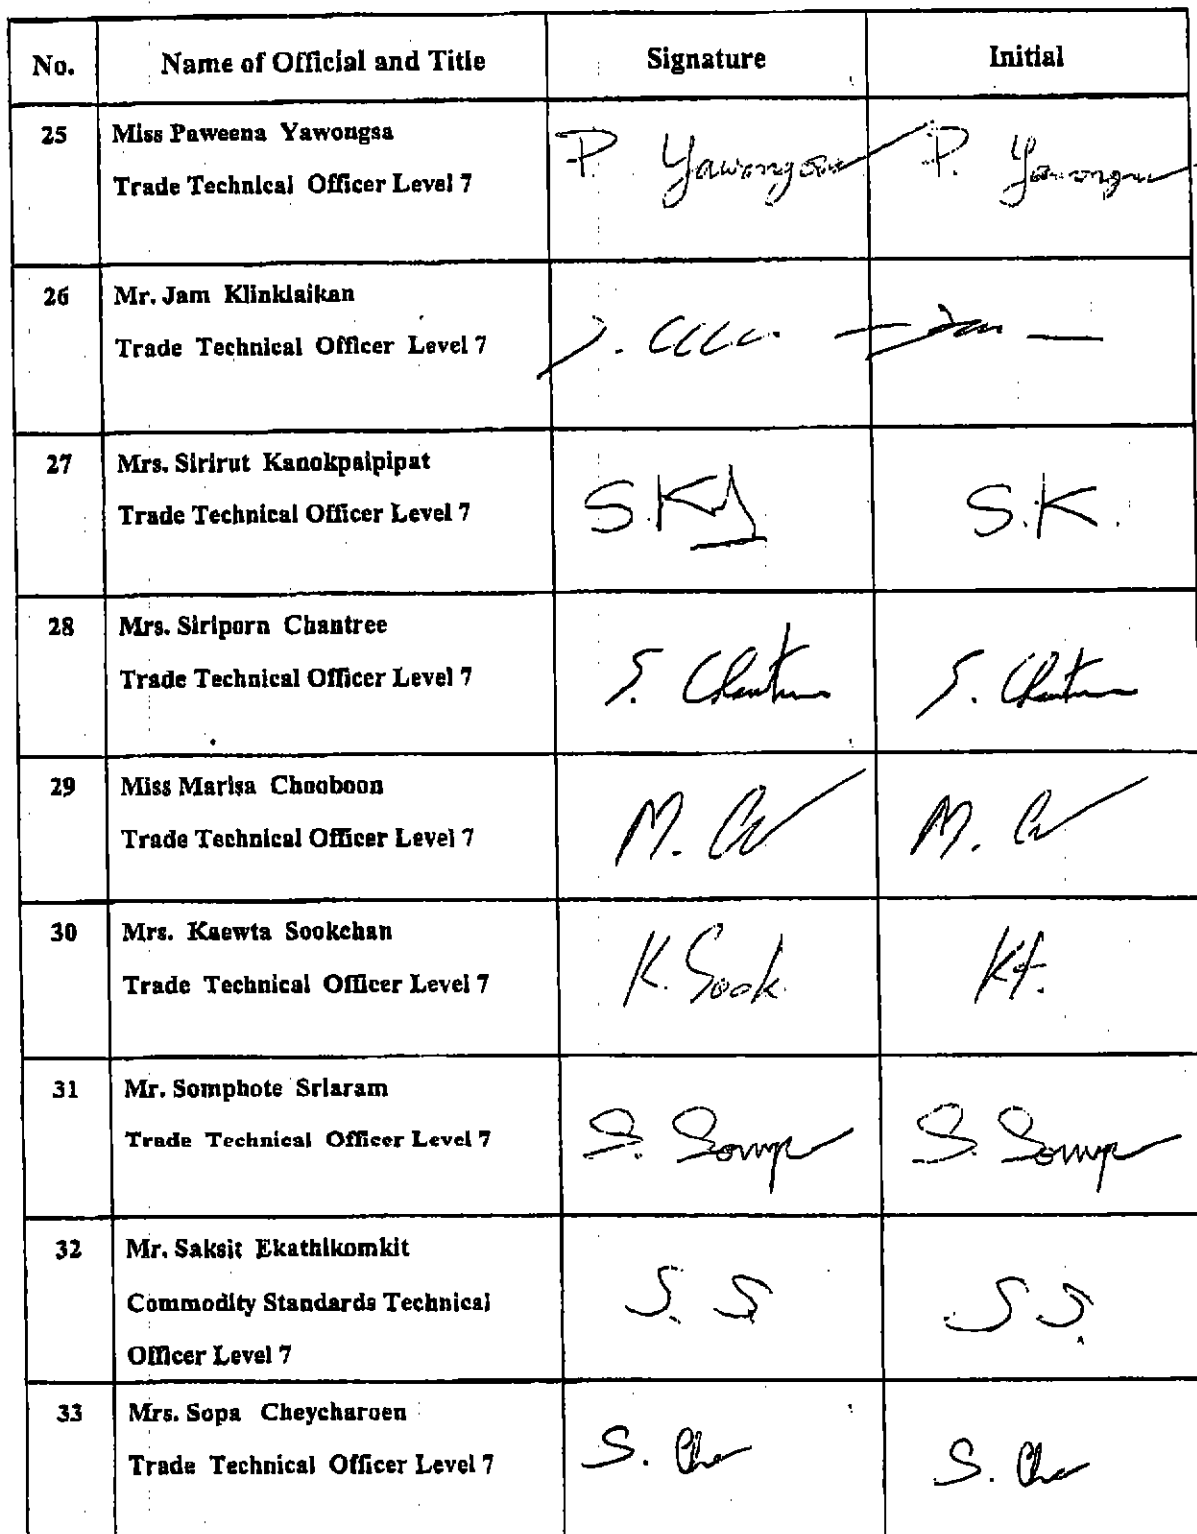 No. Name of Official and Title Signature Initial
25 Miss Paweena Yawongsa
Trade Technical Officer Level 7
P. Yawongsa P. Yawongsa
26 Mr. Jam Klinklaikan
Trade Technical Officer Level 7
J.
27 Mrs. Sirirut Kanokpaipipat
Trade Technical Officer Level 7
S.K S.K.
28 Mrs. Siriporn Chantree
Trade Technical Officer Level 7
S. S.
29 Miss Marisa Chooboon
Trade Technical Officer Level 7
M. M.
30 Mrs. Kaewta Sookchan
Trade Technical Officer Level 7
K. Sook. Kt.
31 Mr. Somphote Sriaram
Trade Technical Officer Level 7
S. Somp S. Somp
32 Mr. Saksit Ekathikomkit
Commodity Standards Technical
Officer Level 7
S. S S S.
33 Mrs. Sopa Cheycharoen
Trade Technical Officer Level 7
S. Che S. Che